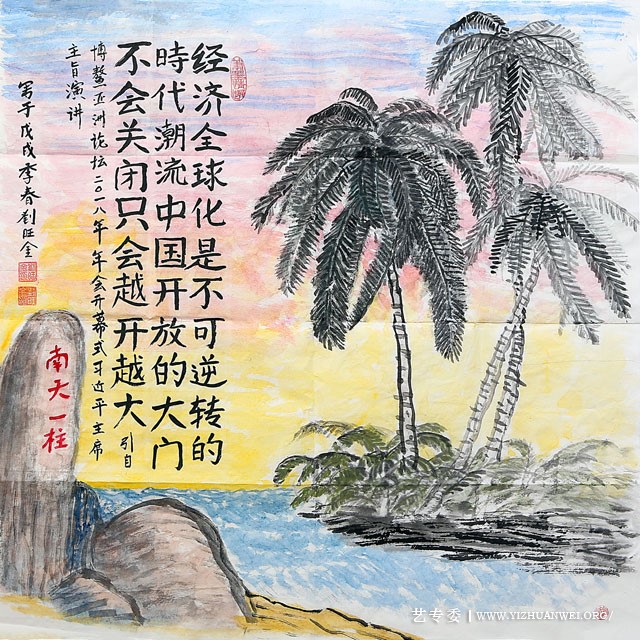 经济全球化是不可逆转的
时代潮流中国开放的大门
不会关闭只会越开越大 引自
博鳌亚洲论坛二〇一八年年会开幕式习近平主席
主旨演讲
写于戊戌季春刘旺金
南天一柱
艺专委 | WWW.YIZHUANWEI.ORG/